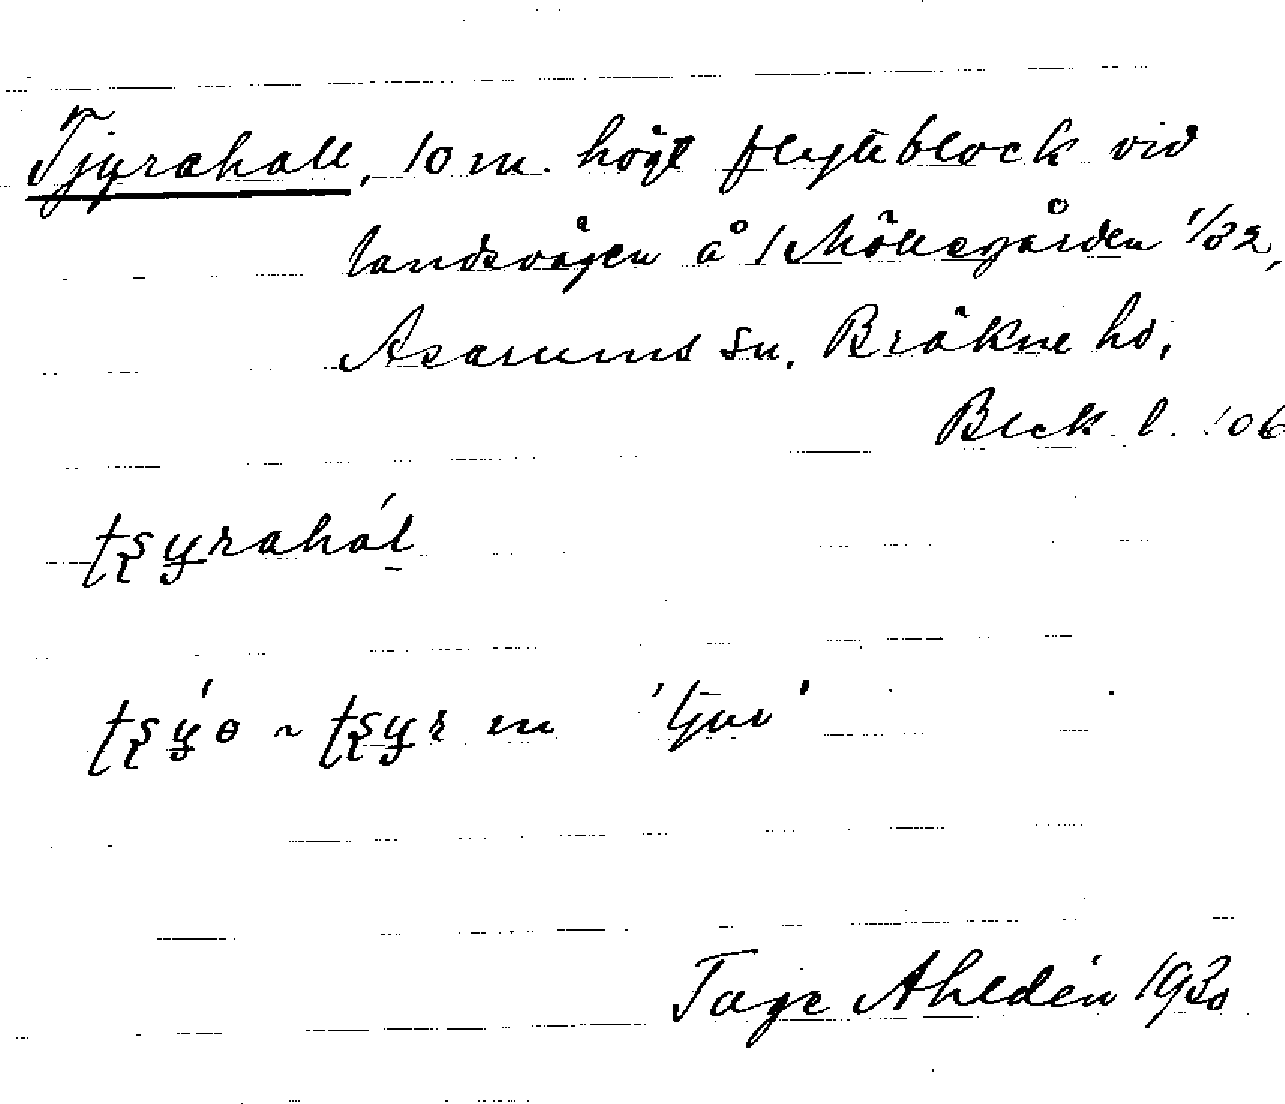 Tjyrahall, 10 m. högt flyttblock vid
landsvägen å 1 Möllegården 1/32,
Asarums sn, Bräkne hd,
Beck l. 106
tʂyrahál
tʂýɵ ~ tʂyr en 'tjur'
Tage Ahldén 1930